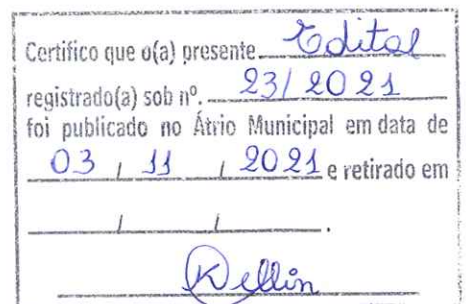 Certifico que o(a) presente Edital
registrado(a) sob nº. 23/2021
foi publicado no Átrio Municipal em data de
03 / 11 / 2021 e retirado em
/ / .
Kellin